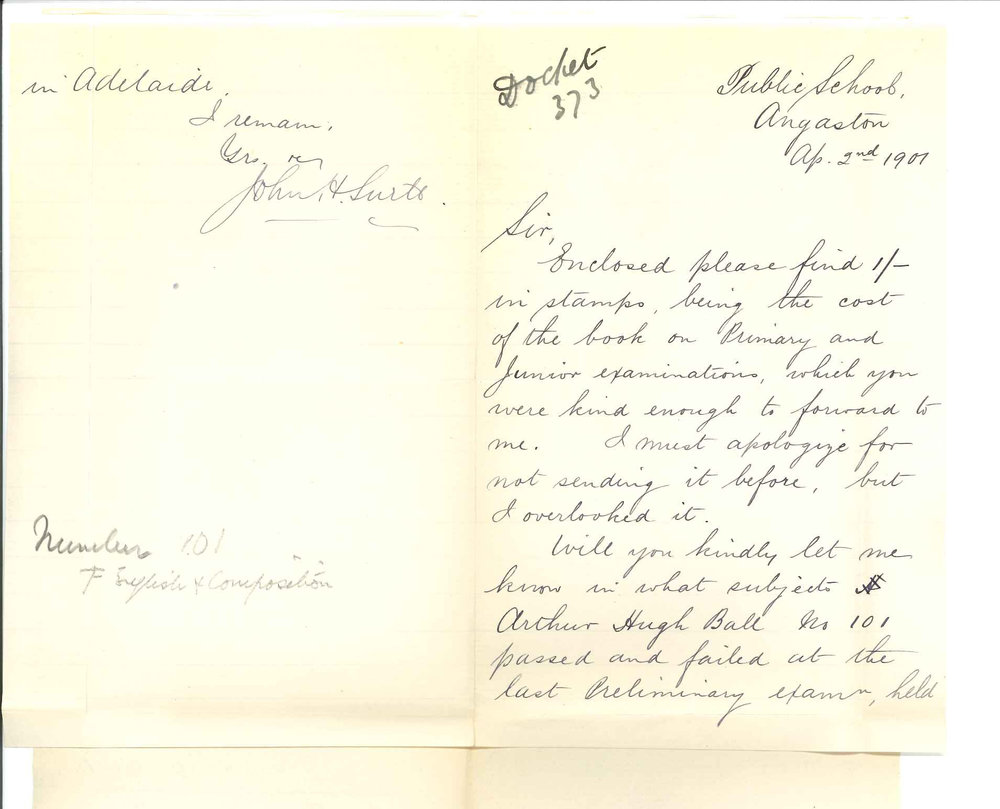 Docket
373
Public School,
Angaston
Ap. 2nd 1901
Sir,
Enclosed please find 1/-
in stamps, being the cost
of the book on Primary and
Junior examinations, which you
were kind enough to forward to
me. I must apologize for
not sending it before, but
I overlooked it.
Will you kindly let me
know in what subjects
Arthur Hugh Ball No 101
passed and failed at the
last Preliminary examn, held
in Adelaide.
I remain,
Yrs.
John H.
Number 101
F English & Composition